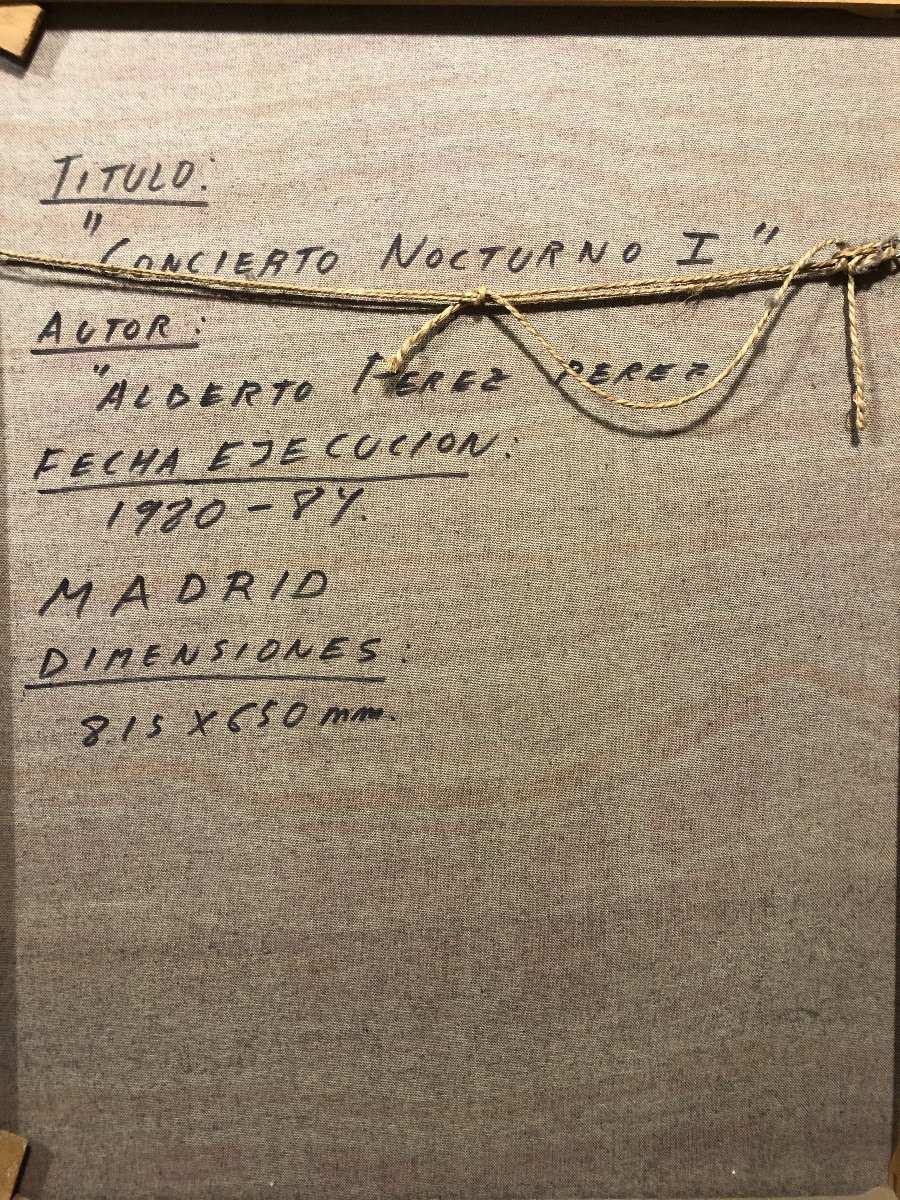 TITULO:
"CONCIERTO NOCTURNO I"
AUTOR:
"ALBERTO PEREZ PEREZ
FECHA EJECUCION:
1980-84.
MADRID
DIMENSIONES:
815 X 650 mm.